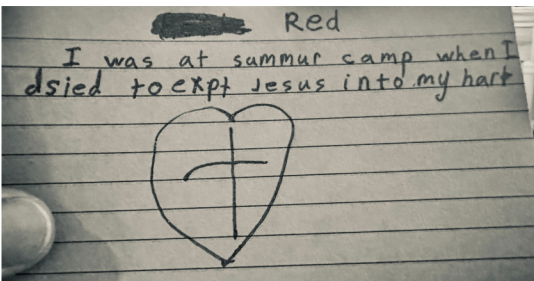 Red
I was at summur camp when I
dsied to expt Jesus into my hart